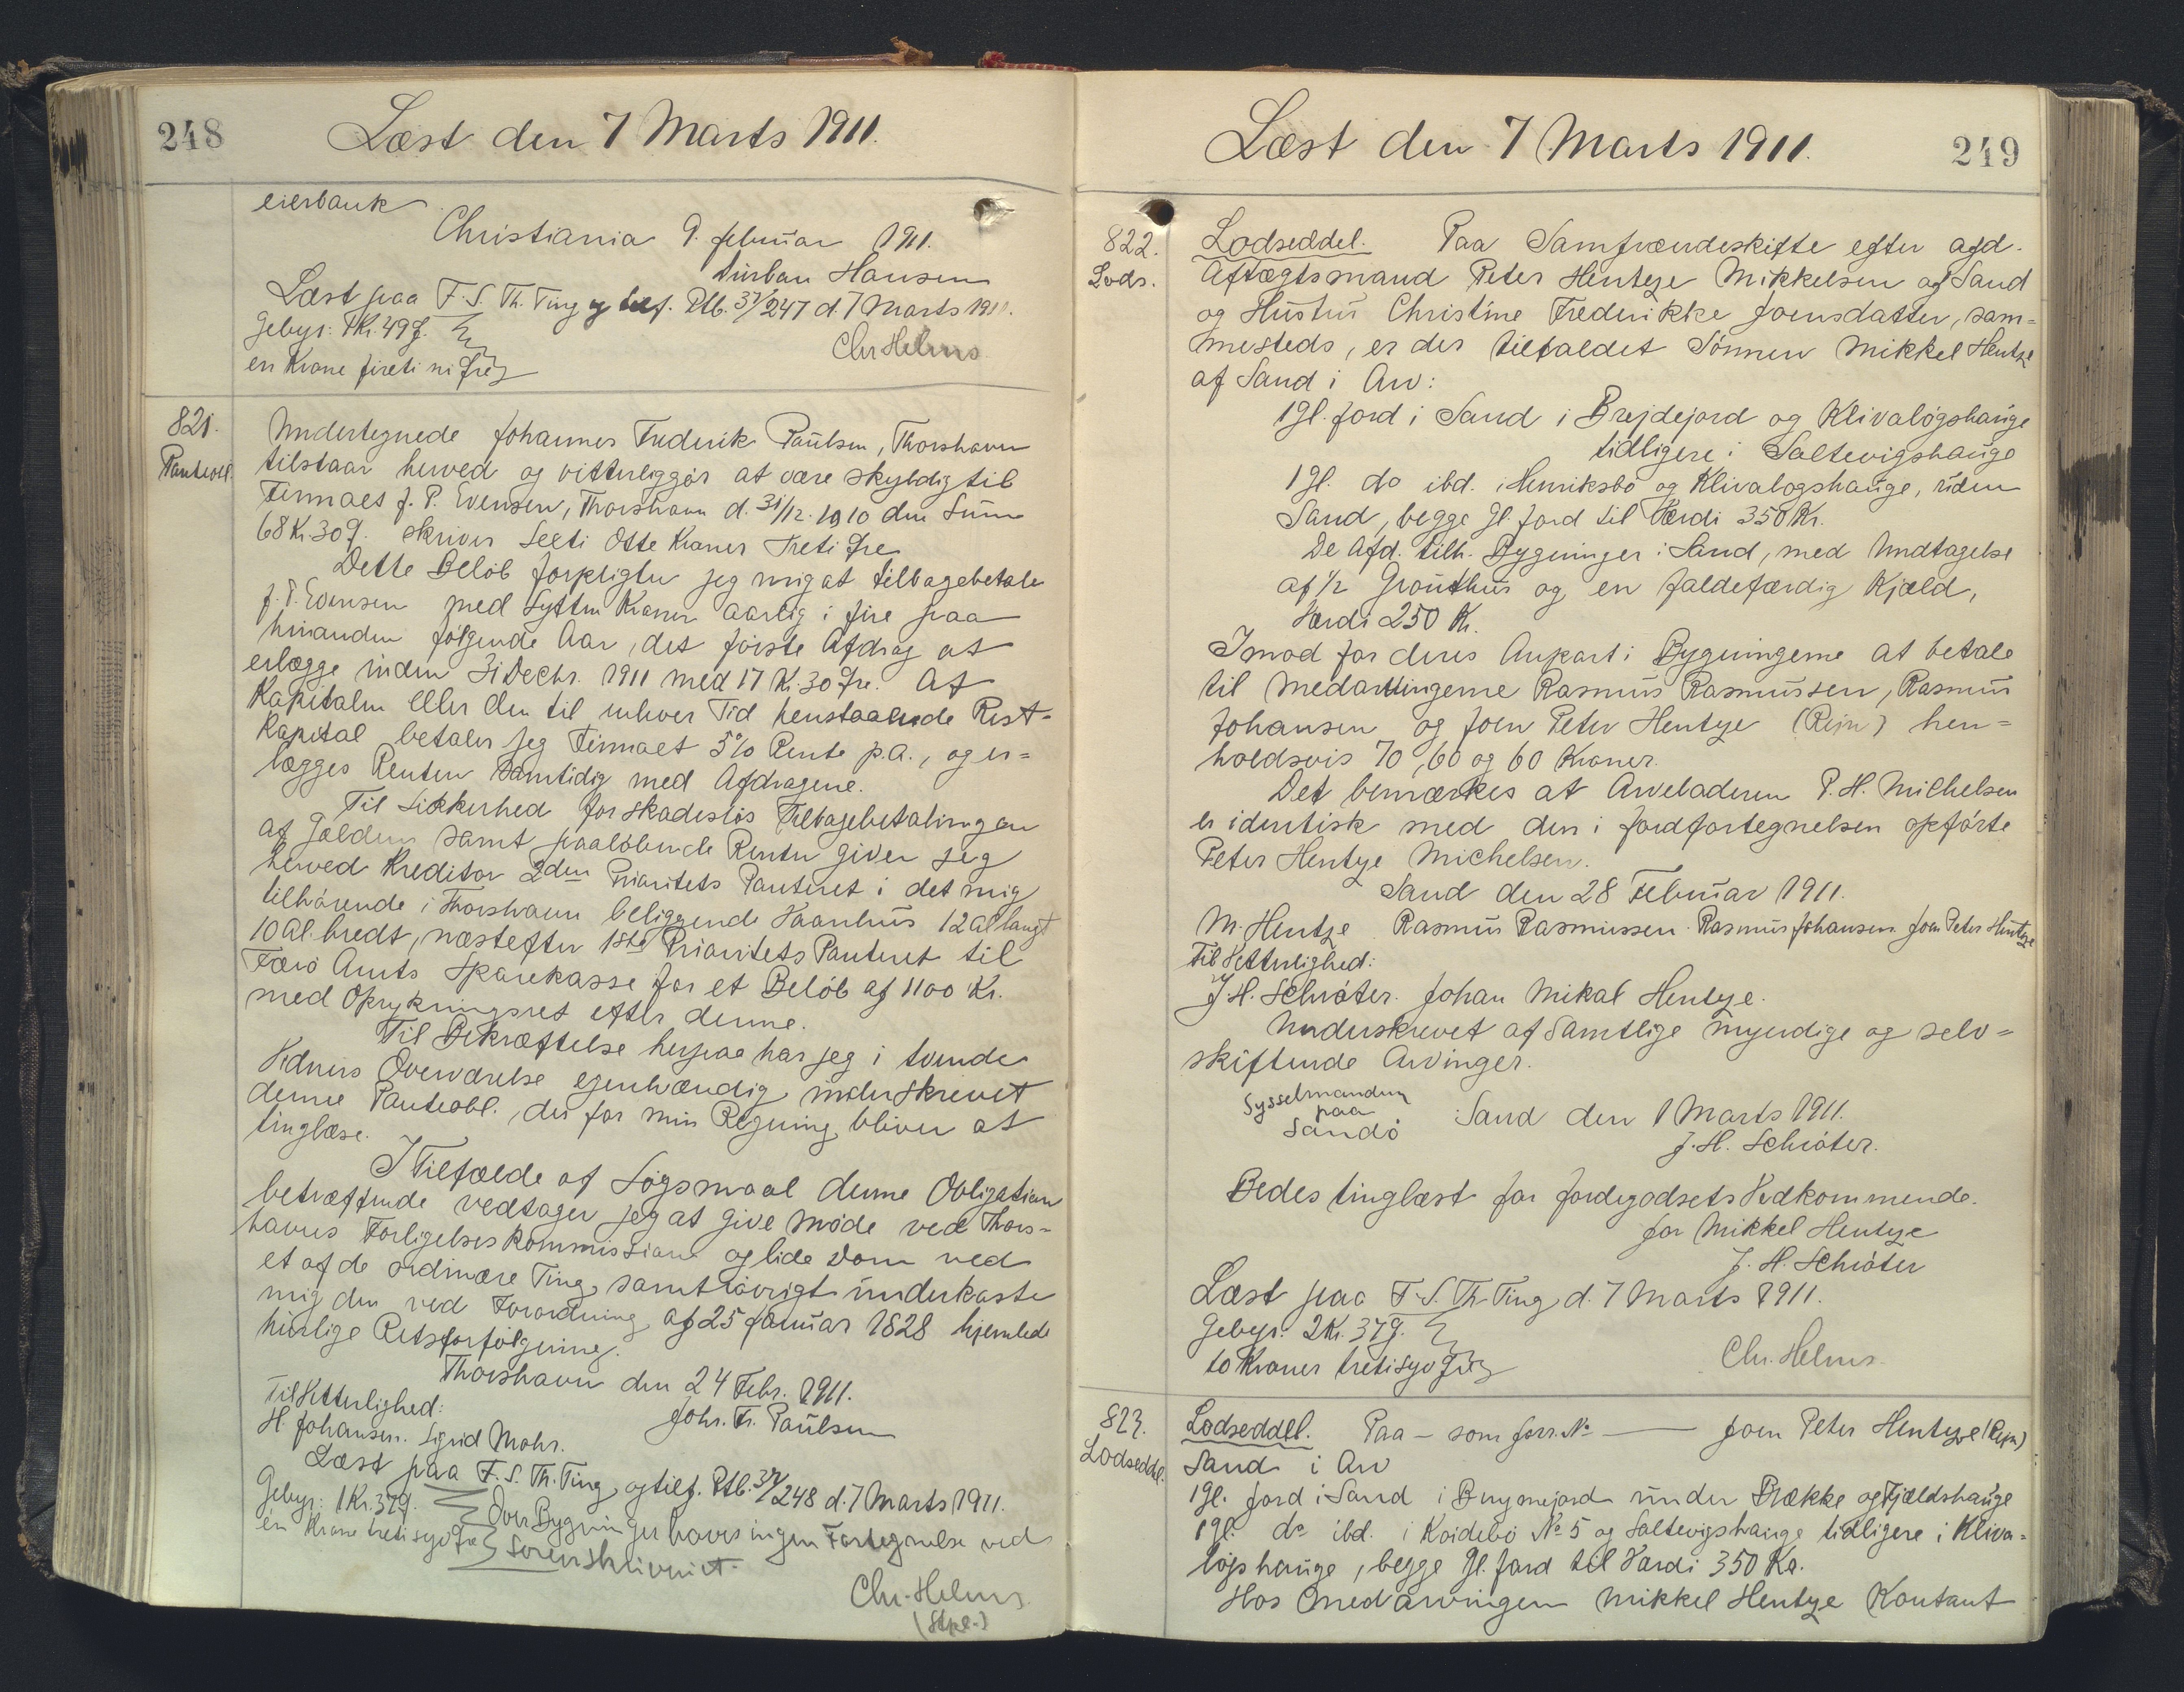 248
Læst den 7 Marts 1911.
eierbank
Christiania 9. februar 1911.
Durban Hansen
Læst paa F. S. Th. Ting og tilf. Ptb. 37/247 d. 7 Marts 1911.
Gebyr: 1Kr. 49 Ø.
Chr Helms
en Krone fireti ni Øre
821.
Panteobl.
Undertegnede Johannes Frederik Paulsen, Thorshavn
tilstaar herved og vitterliggør at være skyldig til
Firmaet J. P. Evensen, Thorshavn d. 31/12. 1910 den Sum
68 Kr. 30 Ø. skriver Sexti Otte Kroner Treti Øre
Dette Beløb forpligter jeg mig at tilbagebetale
J. P. Evensen med Sytten Kroner aarlig i fire paa
hinanden følgende Aar, det første Afdrag at
erlægge inden 31 Decbr. 1911 med 17 Kr. 30 Øre. Af
Kapitalen eller den til enhver Tid henstaaende Rest-
Kapital betaler jeg Firmaet 5% Rente p.a., og er=
lægges Renten samtidig med Afdragene.
Til Sikkerhed for skadesløs Tilbagebetalingen
af Gælden samt paaløbende Renter giver jeg
herved Kreditor 2den Prioritets Panteret i det mig
tilhørende i Thorshavn beliggende Vaanhus 12 Al langt
10 Al. bredt, næstefter 1ste Prioritets Panteret til
Færø Amts Sparekasse for et Beløb af 1100 Kr.
med Oprykningsret efter denne.
Til Bekræftelse herpaa har jeg i tvende
Vidners Overværelse egenhændig underskrevet
denne Panteobl., der for min Regning bliver at
tinglæse.
I Tilfælde af Søgsmaal denne Obligation
betræffende vedtager jeg at give Møde ved Thors-
havns Forligelseskommission og lide Dom ved
et af de ordinære Ting, samt iøvrigt underkaste
mig den ved Forordning af 25 Januar 1828 hjemlede
hurtige Retsforfølgning.
Thorshavn den 24 Febr. 1911.
Til Vitterlighed:
Johs. Fr. Paulsen
H. Johansen. Sigrid Mohr.
Læst paa F. S. Th. Ting og tilf. Ptb. 37/248 d. 7 Marts 1911.
Gebyr: 1 Kr. 37 Ø.
Over Bygninger haves ingen Fortegnelse ved
en Krone tretisyv Øre
Sorenskriveriet.
Chr. Helms
(Stpl.)
Læst den 7 Marts 1911.
249
822.
Lods.
Lodseddel. Paa Samfrændeskifte efter afd.
Aftægtsmand Peter Hentze Mikkelsen af Sand
og Hustru Christine Frederikke Joensdatter, sam=
mesteds, er der tilfaldet Sønnen Mikkel Hentze
af Sand i Arv:
1 Gl. Jord i Sand i Brejdejord og Klivaløgshauge
tidligere i Saltevigshauge
1 Gl. do ibd. i Henriksbø og Klivalogshauge, uden
Sand, begge Gl. Jord til Værdi 350 Kr.
De Afd. tilh. Bygninger i Sand, med Undtagelse
af 1/2 Grouthus og en faldefærdig Kjæld,
Værdi 250 Kr.
Imod for deres Anpart i Bygningerne at betale
til Medarvingerne Rasmus Rasmussen, Rasmus
Johansen og Joen Peter Hentze (Rejn) hen=
holdsvis 70, 60 og 60 Kroner.
Det bemærkes at Arveladeren P. H. Michelsen
er identisk med den i Jordfortegnelsen opførte
Peter Hentze Michelsen.
Sand den 28 Februar 1911.
M. Hentze Rasmus Rasmussen. Rasmus Johansen Joen Peter Hentze
Til Vitterlighed:
J H. Schrøter. Johan Mikal Hentze.
Underskrevet af Samtlige myndige og selv=
skiftende Arvinger.
Sysselmanden
paa
Sandø
Sand den 1 Marts 1911.
J. H. Schrøter.
Bedes tinglæst for Jordegodsets Vedkommende.
for Mikkel Hentze
J. H. Schrøter
Læst paa F. S. Th. Ting d. 7 Marts 1911.
Gebyr: 2 Kr. 37 Ø.
to Kroner tretisyv Øre
Chr. Helms.
823.
Lodseddel.
Lodseddel. Paa - som forr. No — Joen Peter Hentze (Rejn)
Sand i Arv
1 Gl. Jord i Sand i Brynnejord under Brække og Fjældshauge
1 Gl. do ibd. i Koidebø No 5 og Saltevigshauge tidligere i Kliva-
løjshauge, begge Gl. Jord til Værdi 350 Kr.
Hos Medarvingen Mikkel Hentze Kontant